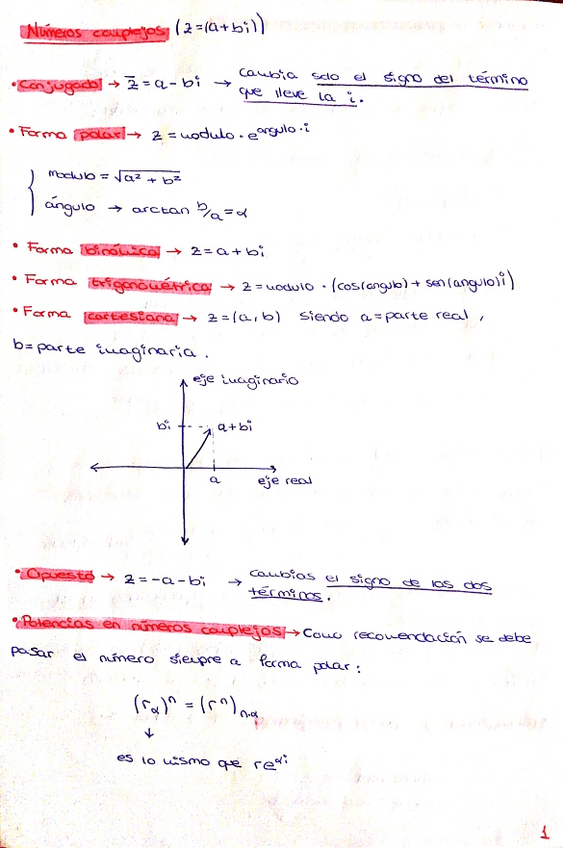 Números complejos (z=(a+bi))
• Conjugado → z̅ = a - bi → Cambia solo el signo del término
que lleve la i.
• Forma polar → z = modulo · e^angulo·i
modulo = √a² + b²
ángulo → arctan b/a = α
• Forma binómica → z = a + bi
• Forma trigonométrica → z = modulo · (cos(angulo) + sen(angulo)i)
• Forma cartesiana → z = (a, b) siendo a = parte real,
b = parte imaginaria.
eje imaginario
bi
a + bi
a
eje real
• Opuesto → z = -a - bi → Cambias el signo de los dos
términos.
• Potencias en números complejos → Como recomendación se debe
pasar el número siempre a forma polar:
(r_α)ⁿ = (rⁿ)_n·α
↓
es lo mismo que re^αi
1